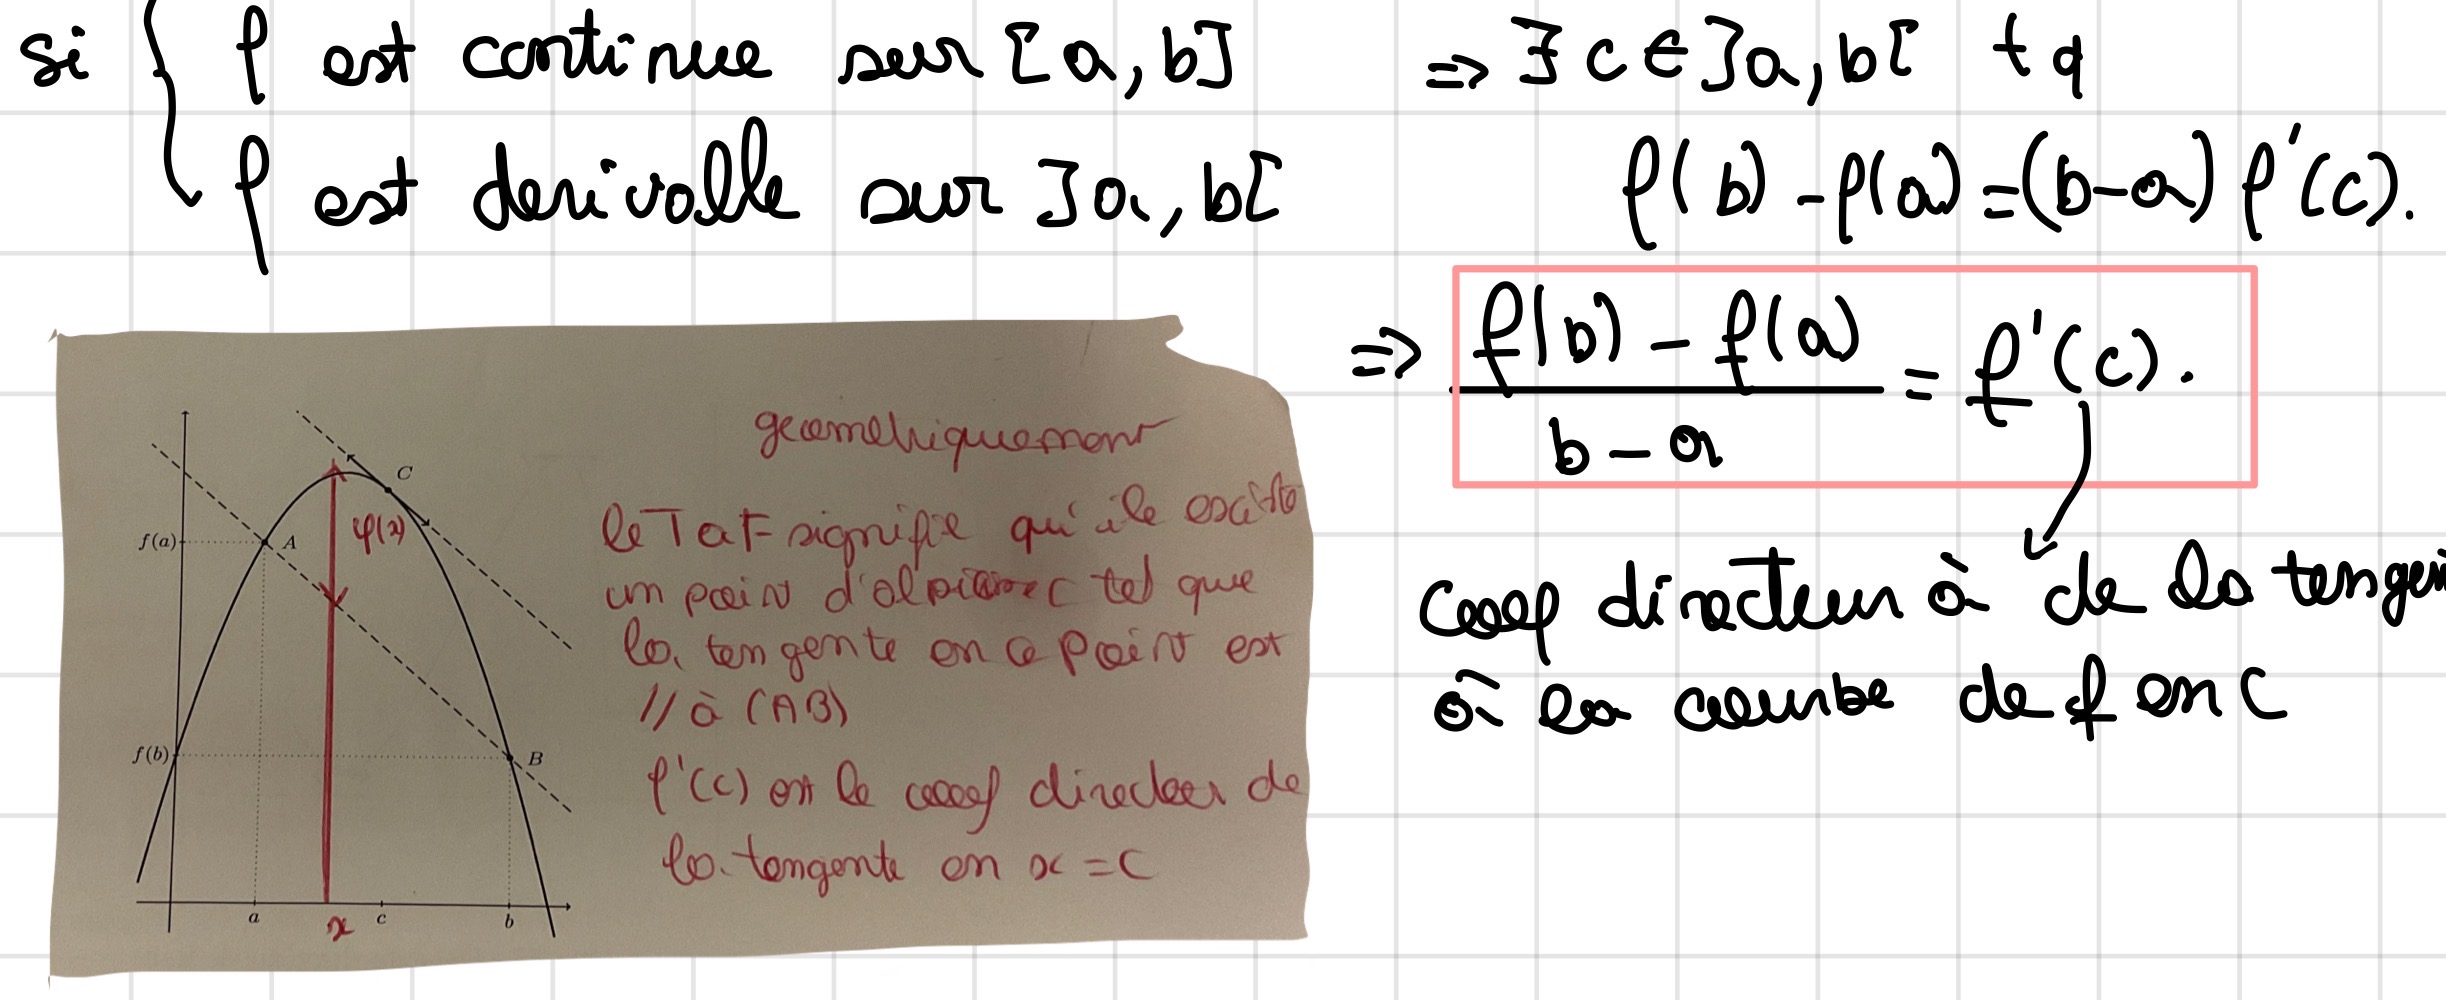 si { f est continue sur [a, b]
f est derivable sur ]a, b[
=> ∃ c ∈ ]a, b[ tq
f(b) - f(a) = (b-a) f'(c).
=> \frac{f(b) - f(a)}{b - a} = f'(c).
coef directeur à de la
à la courbe de f en c
geometriquement
le TaF signifie qu'ile existe
un point d'abscisse c tel que
la tengente en ce point est
// à (AB)
f'(c) est le coeef directeur de
la tengente en x = c
C
f(a) A φ(x)
f(b) B
a x c b